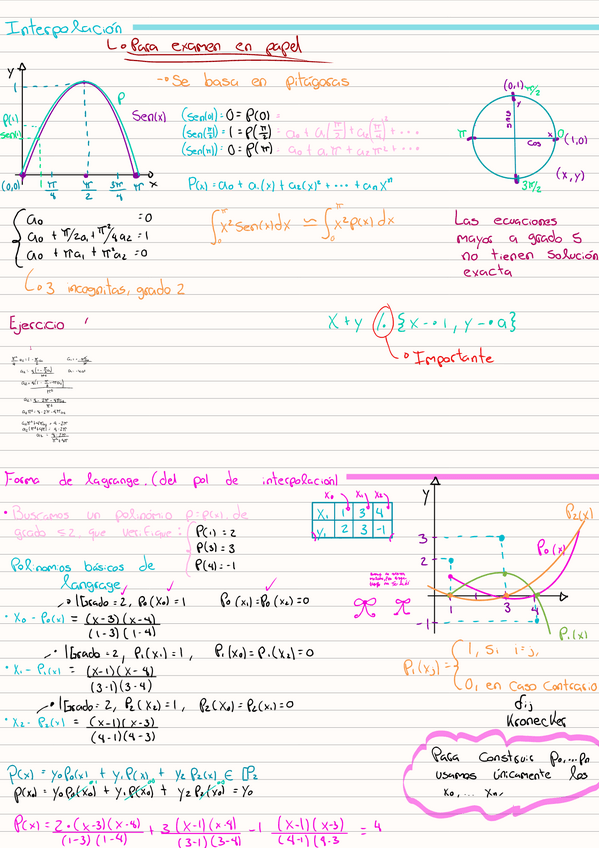 Interpolación
↳ Para examen en papel
→ Se basa en pitágoras
y
1
P
Sen(x)
P(1)
Sen(1)
(0,0)
π/4
π/2
3π/4
π
x
(sen(0)) = 0 = P(0) =
(sen(π/2)) = 1 = P(π/2) = a0 + a1(π/2) + a2(π/2)² + ...
(sen(π)) = 0 = P(π) = a0 + a1π + a2π² + ...
P(x) = a0 + a1(x) + a2(x)² + ... + anxⁿ
(0,1) π/2
y
sen
cos
x
π
0
(1,0)
3π/2
(x,y)
a0 = 0
a0 + π/2a1 + π²/4a2 = 1
a0 + πa1 + π²a2 = 0
↳ 3 incognitas, grado 2
∫₀^π x² sen(x)dx ≃ ∫₀^π x² p(x) dx
Las ecuaciones
mayor a grado 5
no tienen solución
exacta
Ejercicio 1
x + y /. {x → 1, y → a}
↳ Importante
Forma de lagrange. (del pol de interpolación)
• Buscamos un polinomio p = p(x), de
grado ≤ 2, que verifique:
P(1) = 2
P(3) = 3
P(4) = -1
x0 x1 x2
xi 1 3 4
yi 2 3 -1
Polinomios básicos de
langrage
→ |Grado = 2, P0(x0) = 1 P0(x1) = P0(x2) = 0
• x0 - P0(x) = (x-3)(x-4)
(1-3)(1-4)
→ |Grado = 2, P1(x1) = 1, P1(x0) = P1(x2) = 0
• x1 - P1(x) = (x-1)(x-4)
(3-1)(3-4)
→ |Grado = 2, P2(x2) = 1, P2(x0) = P2(x1) = 0
• x2 - P2(x) = (x-1)(x-3)
(4-1)(4-3)
Y
3
2
-1
1
3
4
P2(x)
P0(x)
P1(x)
Pi(xj) = { 1, si i=j
0, en caso contrario
δij
Kronecker
Para construir P0,...Pn
usamos únicamente los
x0, ... xn
P(x) = y0P0(x) + y1P1(x) + y2P2(x) ∈ P2
P(x0) = y0P0(x0) + y1P1(x0) + y2P2(x0) = y0
P(x) = 2·(x-3)(x-4) + 3(x-1)(x-4) -1 (x-1)(x-3) = 4
(1-3)(1-4) (3-1)(3-4) (4-1)(4-3